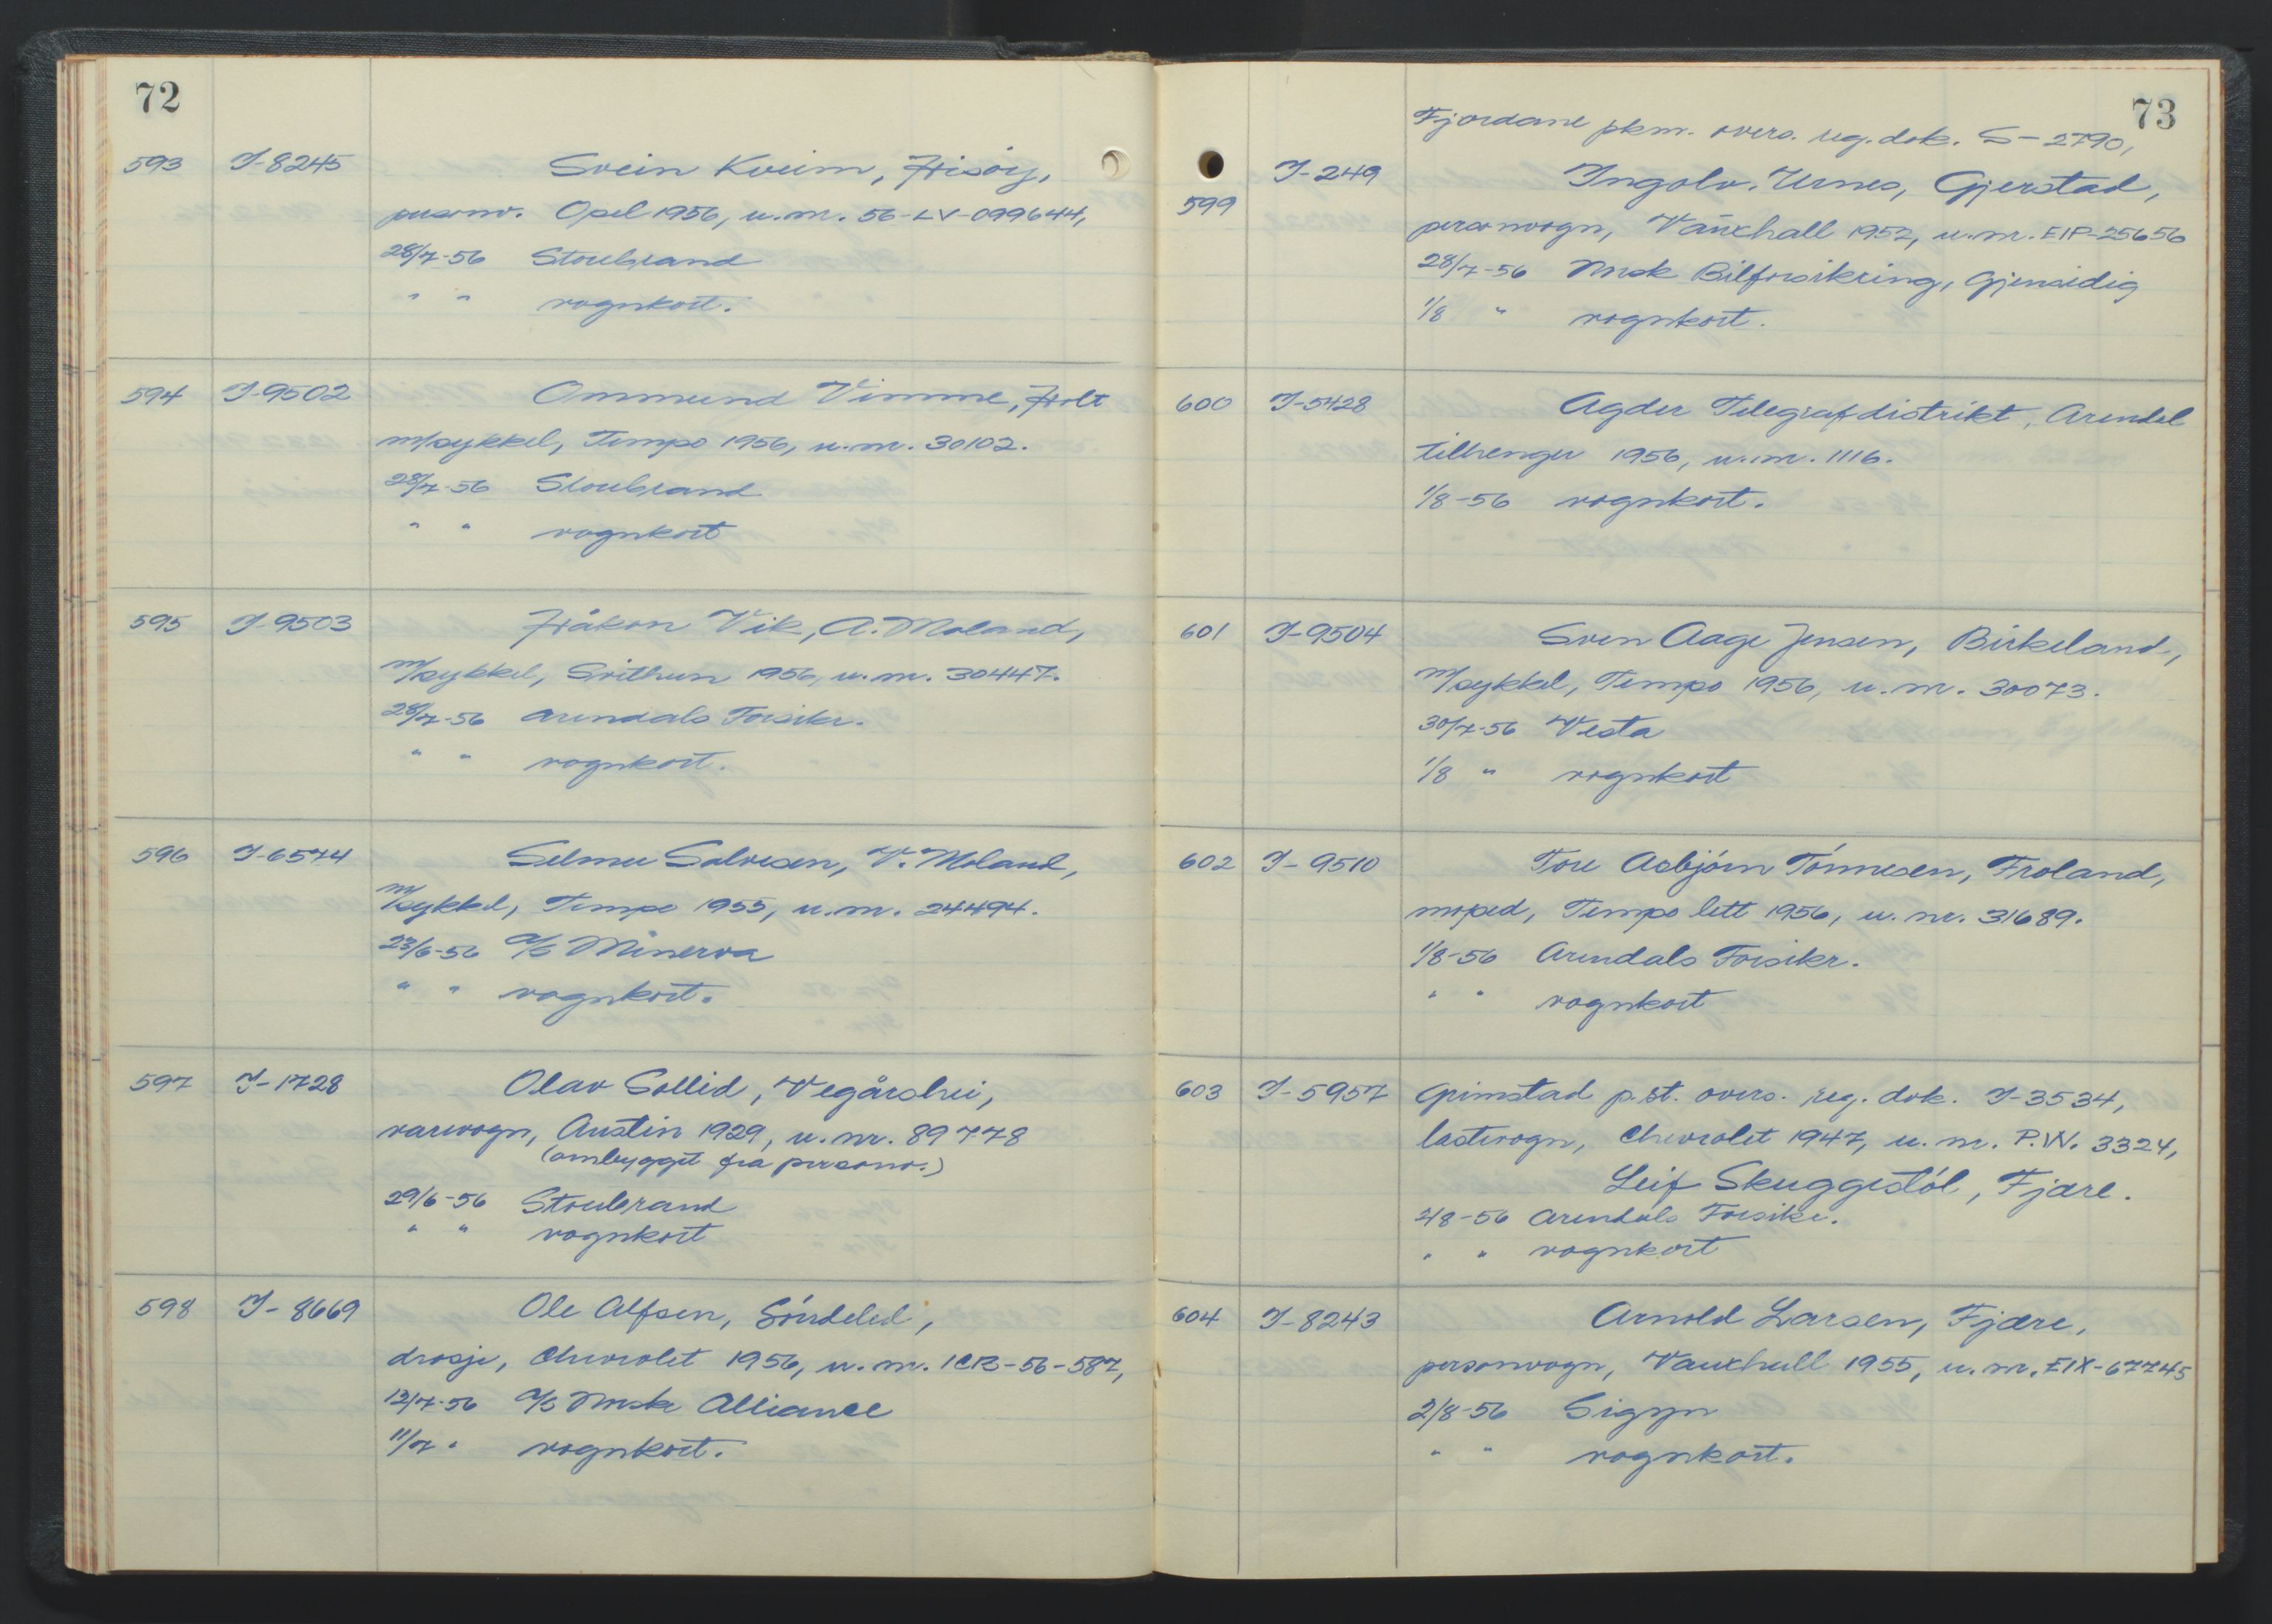 72
593 I-8245 Svein Kveim, Hisöy,
personv. Opel 1956, u.nr. 56-LV-099644,
28/7-56 Storebrand
" " vognkort.
594 I-9502 Ommund Vimme, Holt
m/sykkel, Tempo 1956, u.nr. 30102.
28/7-56 Storebrand
" " vognkort
595 I-9503 Håkon Vik, A. Moland,
m/sykkel, Svithun 1956, u.nr. 30447.
28/7-56 Arendals Forsikr.
" " vognkort.
596 I-6574 Selmer Salvesen, V. Moland,
m/sykkel, Tempo 1955, u.nr. 24494.
23/6-56 A/S Minerva
" " vognkort.
597 I-1728 Olav Sollid, Vegårshei,
varevogn, Austin 1929, u.nr. 89778
(ombygget fra personv.)
29/6-56 Storebrand
" " vognkort
598 I-8669 Ole Alfsen, Söndeled,
drosje, Chevrolet 1956, u.nr. 1CR-56-587,
12/7-56 A/S Norske Alliance
11/7 " vognkort.
73
Fjordane pkm. overs. reg.dok. S-2790,
599 I-249 Ingolv. Urnes, Gjerstad,
personvogn, Vauxhall 1952, u.nr. EIP-25656
28/7-56 Norsk Bilforsikring, Gjensidig
1/8 " vognkort.
600 I-5428 Agder Telegrafdistrikt, Arendal
tilhenger 1956, u.nr. 1116.
1/8-56 vognkort.
601 I-9504 Sven Aage Jensen, Birkeland,
m/sykkel, Tempo 1956, u.nr. 30073.
30/7-56 Vesta
1/8 " vognkort
602 I-9510 Tore Asbjörn Tönnesen, Froland,
moped, Tempo lett 1956, u.nr. 31689.
1/8-56 Arendals Forsikr.
" " vognkort
603 I-5957 Grimstad p.st. overs. reg.dok. I-3534,
lastevogn, Chevrolet 1947, u.nr. P.W. 3324,
Leif Skuggestöl, Fjære.
2/8-56 Arendals Forsikr.
" " vognkort
604 I-8243 Arnold Larsen, Fjære,
personvogn, Vauxhall 1955, u.nr. EIX-67745
2/8-56 Sigyn
" " vognkort.